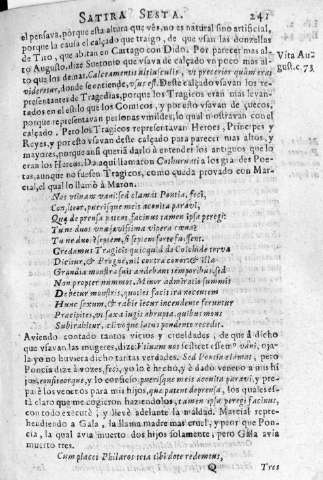 SATIRA SESTA. 241
el pensava, porque esta altura que vès, no es natural sino artificial,
porque la causa el calçado que traigo, de que vsan las donzellas
de Tiro, que abitan en Cartago con Dido. Por parecer mas al-
to Augusto, dize Suetonio que vsava de calçado vn poco mas al-
to que los demas. Calceamentis altiusculis, vt procerior quàm erat
videretur, donde se entiende, vsus est. Deste calçado vsavan los re-
presentantes de Tragedias, porque los Tragicos eran mas levan-
tados en el estilo que los Comicos, y por esto vsavan de çuecos,
porque representavan personas vmildes, lo qual mostravan con el
calçado. Pero los Tragicos representavan Heroes, Principes y
Reyes, y por esto vsavan deste calçado para parecer mas altos, y
mayores, porque assi queria darlo à entender los antiguos que lo
eran los Heroes. Da aqui llamaron Cothurnati a los grandes Poe-
tas, aunque no fuessen Tragicos, como queda provado con Mar-
cial, el qual lo llamò à Maron.
Vita Au-
gust. c. 73
Nos vtinam vani: sed clamat Pontia, feci,
Confiteor, puerisque meis aconita paravi,
Quæ deprensa patent, facinus tamen ipsa peregi:
Tune duos vna sævissima vipera cœna?
Tu ne duos? septem, si septem forte fuissent.
Credamus Tragicis quicquid de Colchide torva
Dicitur, & Progne, nil contra conor: & illa
Grandia monstra suis audebant temporibus, sed
Non propter nummos. Minor admiratio summis
Debetur monstris, quoties facit ira nocentem
Hunc sexum, & rabie iecur incendente feruntur
Præcipites, vt saxa iugis abrupta, quibus mons
Subtrahitur, clivoque latus pendente recedit.
Aviendo contado tantos vicios y crueldades, de que à dicho
que vsavan las mugeres, dize: Vtinam nos scilicet essemus vani, oja-
la yo no huviera dicho tantas verdades. Sed Pontia clamat, pero
Poncia dize à vozes, feci, yo lo è hecho, y è dado veneno a mis hi
jos, confiteorque, y lo confiesso, puerisque meis aconita paravi, y pre-
parè los venenos para mis hijos, quæ patent deprensa, los quales es-
tà claro que me cogieron haziendolos, tamen ipsa peregi facinus,
con todo executè, y llevè adelante la maldad. Marcial repre-
hendiendo a Gala, la llama madre mas cruel, y peor que Pon-
cia, la qual avia muerto dos hijos solamente, pero Gala avia
muerto tres.
Cum placet Phileros tota tibi dote redemptus,
Q Tres